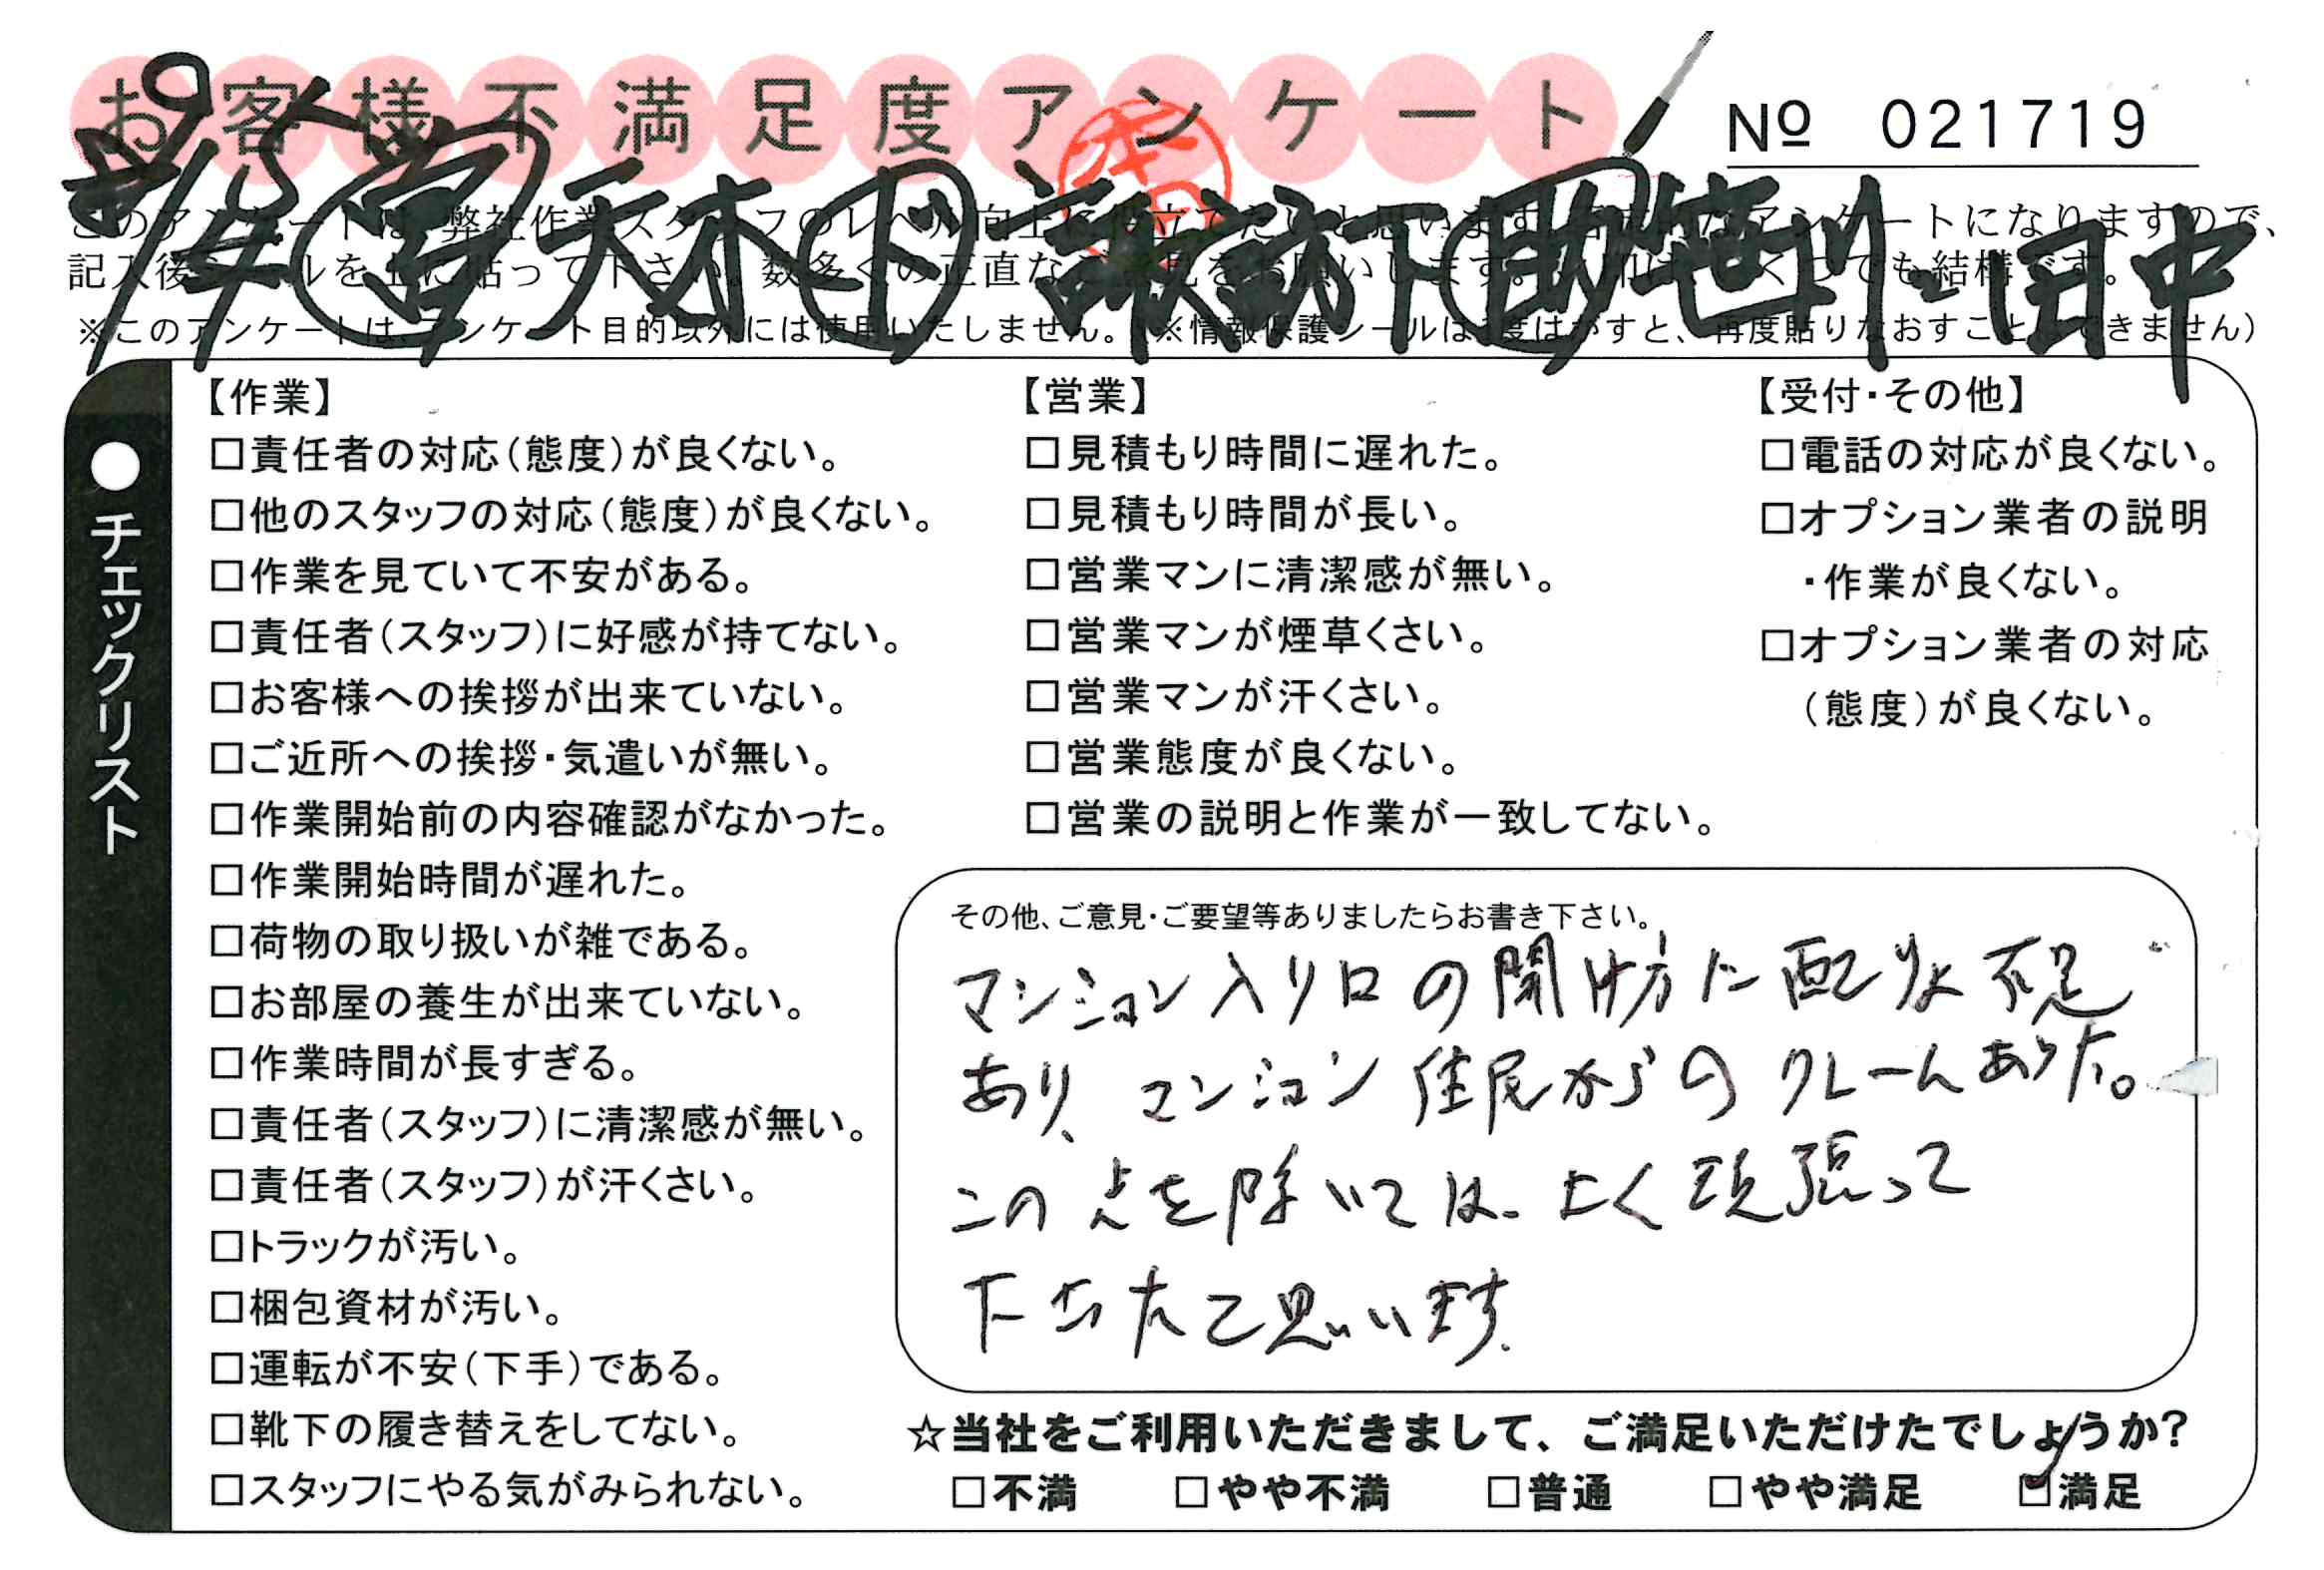 お客様不満足度アンケート
№ 021719
9/15 営 天木 下 諏訪下 助 笹川・田中
このアンケートは、弊社作業スタッフのレベル向上に役立てたいと思います。アンケートになりますので、
記入後シールを上に貼って下さい。数多くの正直なご意見をお願いします。くつでも結構です。
※このアンケートは、アンケート目的以外には使用いたしません。（※情報保護シールは1度はがすと、再度貼りなおすことはできません）
●チェックリスト
【作業】
□責任者の対応（態度）が良くない。
□他のスタッフの対応（態度）が良くない。
□作業を見ていて不安がある。
□責任者（スタッフ）に好感が持てない。
□お客様への挨拶が出来ていない。
□ご近所への挨拶・気遣いが無い。
□作業開始前の内容確認がなかった。
□作業開始時間が遅れた。
□荷物の取り扱いが雑である。
□お部屋の養生が出来ていない。
□作業時間が長すぎる。
□責任者（スタッフ）に清潔感が無い。
□責任者（スタッフ）が汗くさい。
□トラックが汚い。
□梱包資材が汚い。
□運転が不安（下手）である。
□靴下の履き替えをしてない。
□スタッフにやる気がみられない。
【営業】
□見積もり時間に遅れた。
□見積もり時間が長い。
□営業マンに清潔感が無い。
□営業マンが煙草くさい。
□営業マンが汗くさい。
□営業態度が良くない。
□営業の説明と作業が一致してない。
【受付・その他】
□電話の対応が良くない。
□オプション業者の説明
・作業が良くない。
□オプション業者の対応
（態度）が良くない。
その他、ご意見・ご要望等ありましたらお書き下さい。
マンション入り口の開け方に配りょ不足
あり、マンション住民からのクレームありた。
この点を除いては、よく頑張って
下さったと思います.
☆当社をご利用いただきまして、ご満足いただけたでしょうか？
□不満 □やや不満 □普通 □やや満足 ☑満足